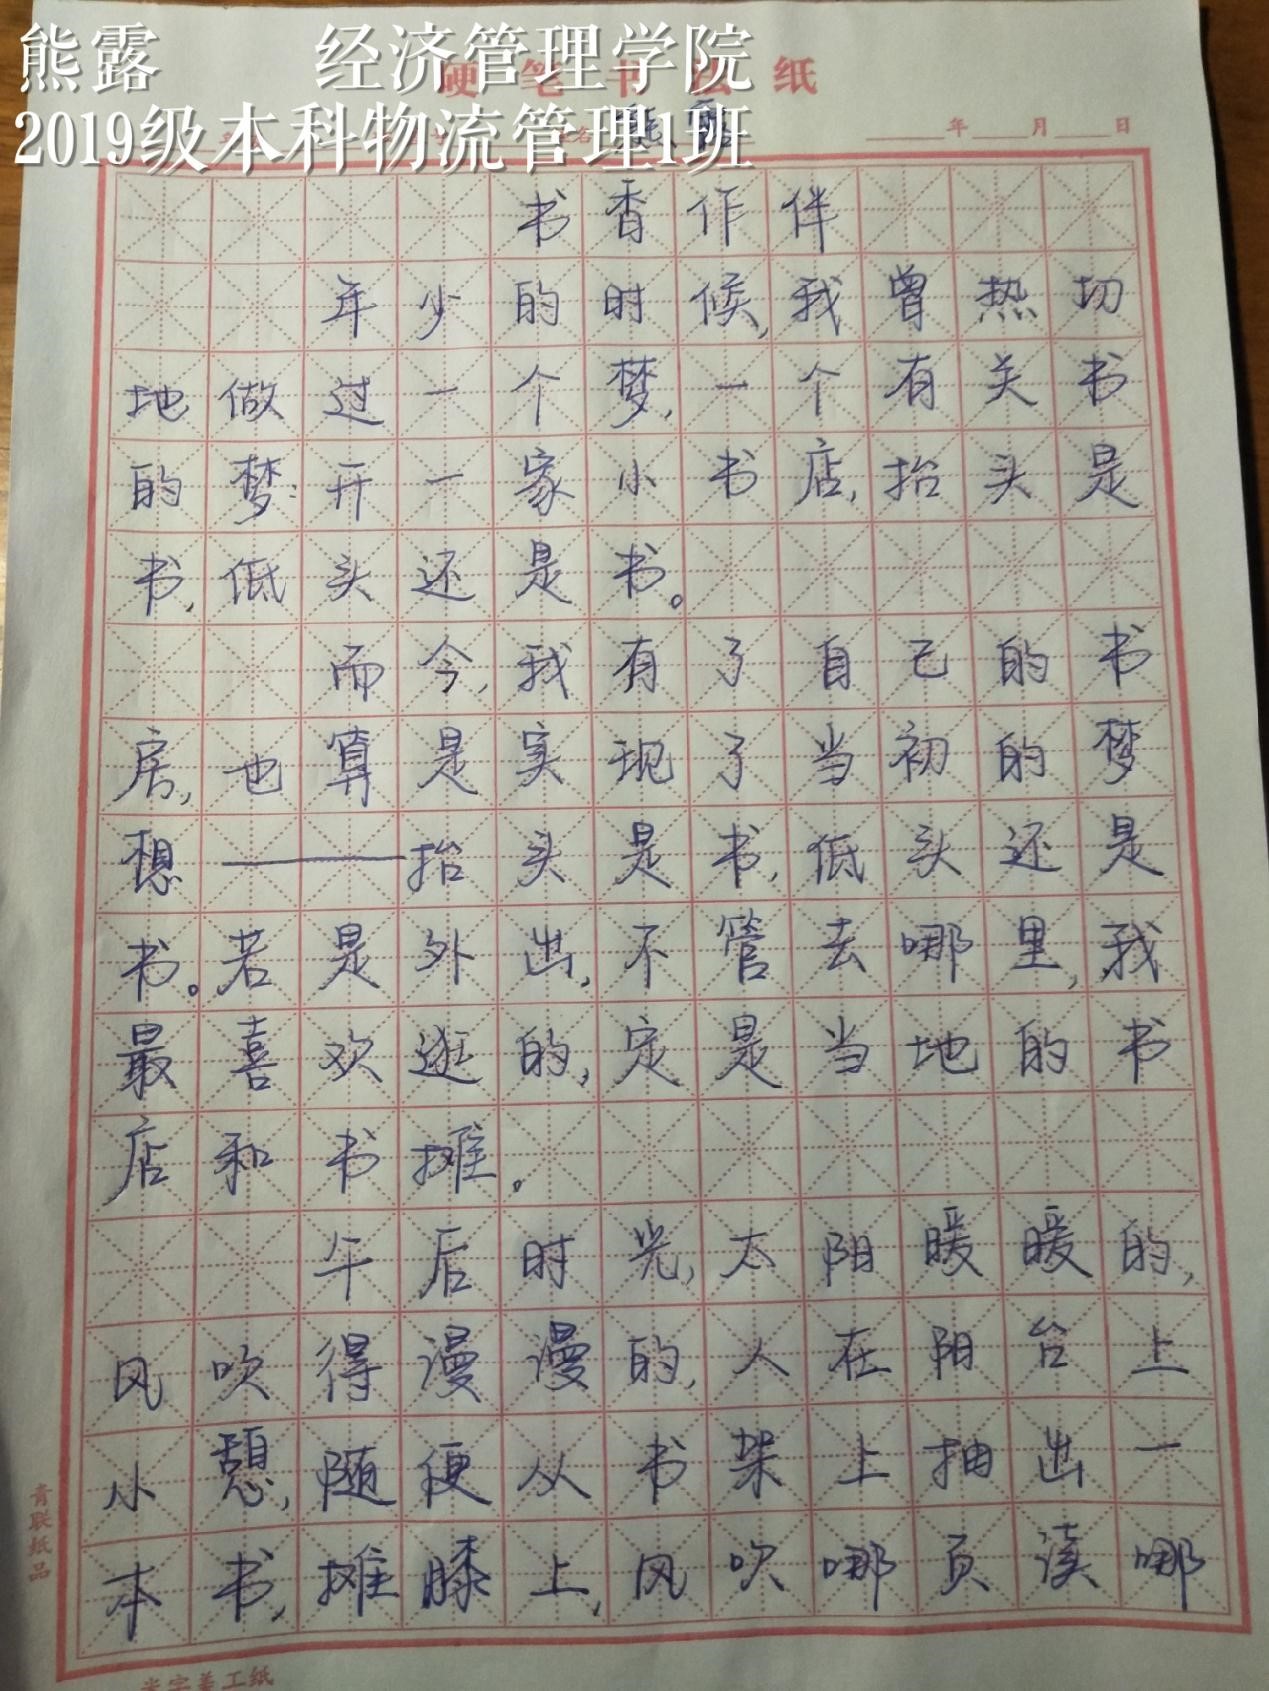 熊露 经济管理学院
2019级本科物流管理1班
硬笔书法纸
名 熊露 年 月 日
书香作伴
年少的时候,我曾热切
地做过一个梦,一个有关书
的梦:开一家小书店,抬头是
书,低头还是书。
而今,我有了自己的书
房,也算是实现了当初的梦
想——抬头是书,低头还是
书。若是外出,不管去哪里,我
最喜欢逛的,定是当地的书
店和书摊。
午后时光,太阳暖暖的,
风吹得漫漫的,人在阳台上
小憩,随便从书架上抽出一
本书,摊膝上,风吹哪页读哪
青联纸品
米字美工纸